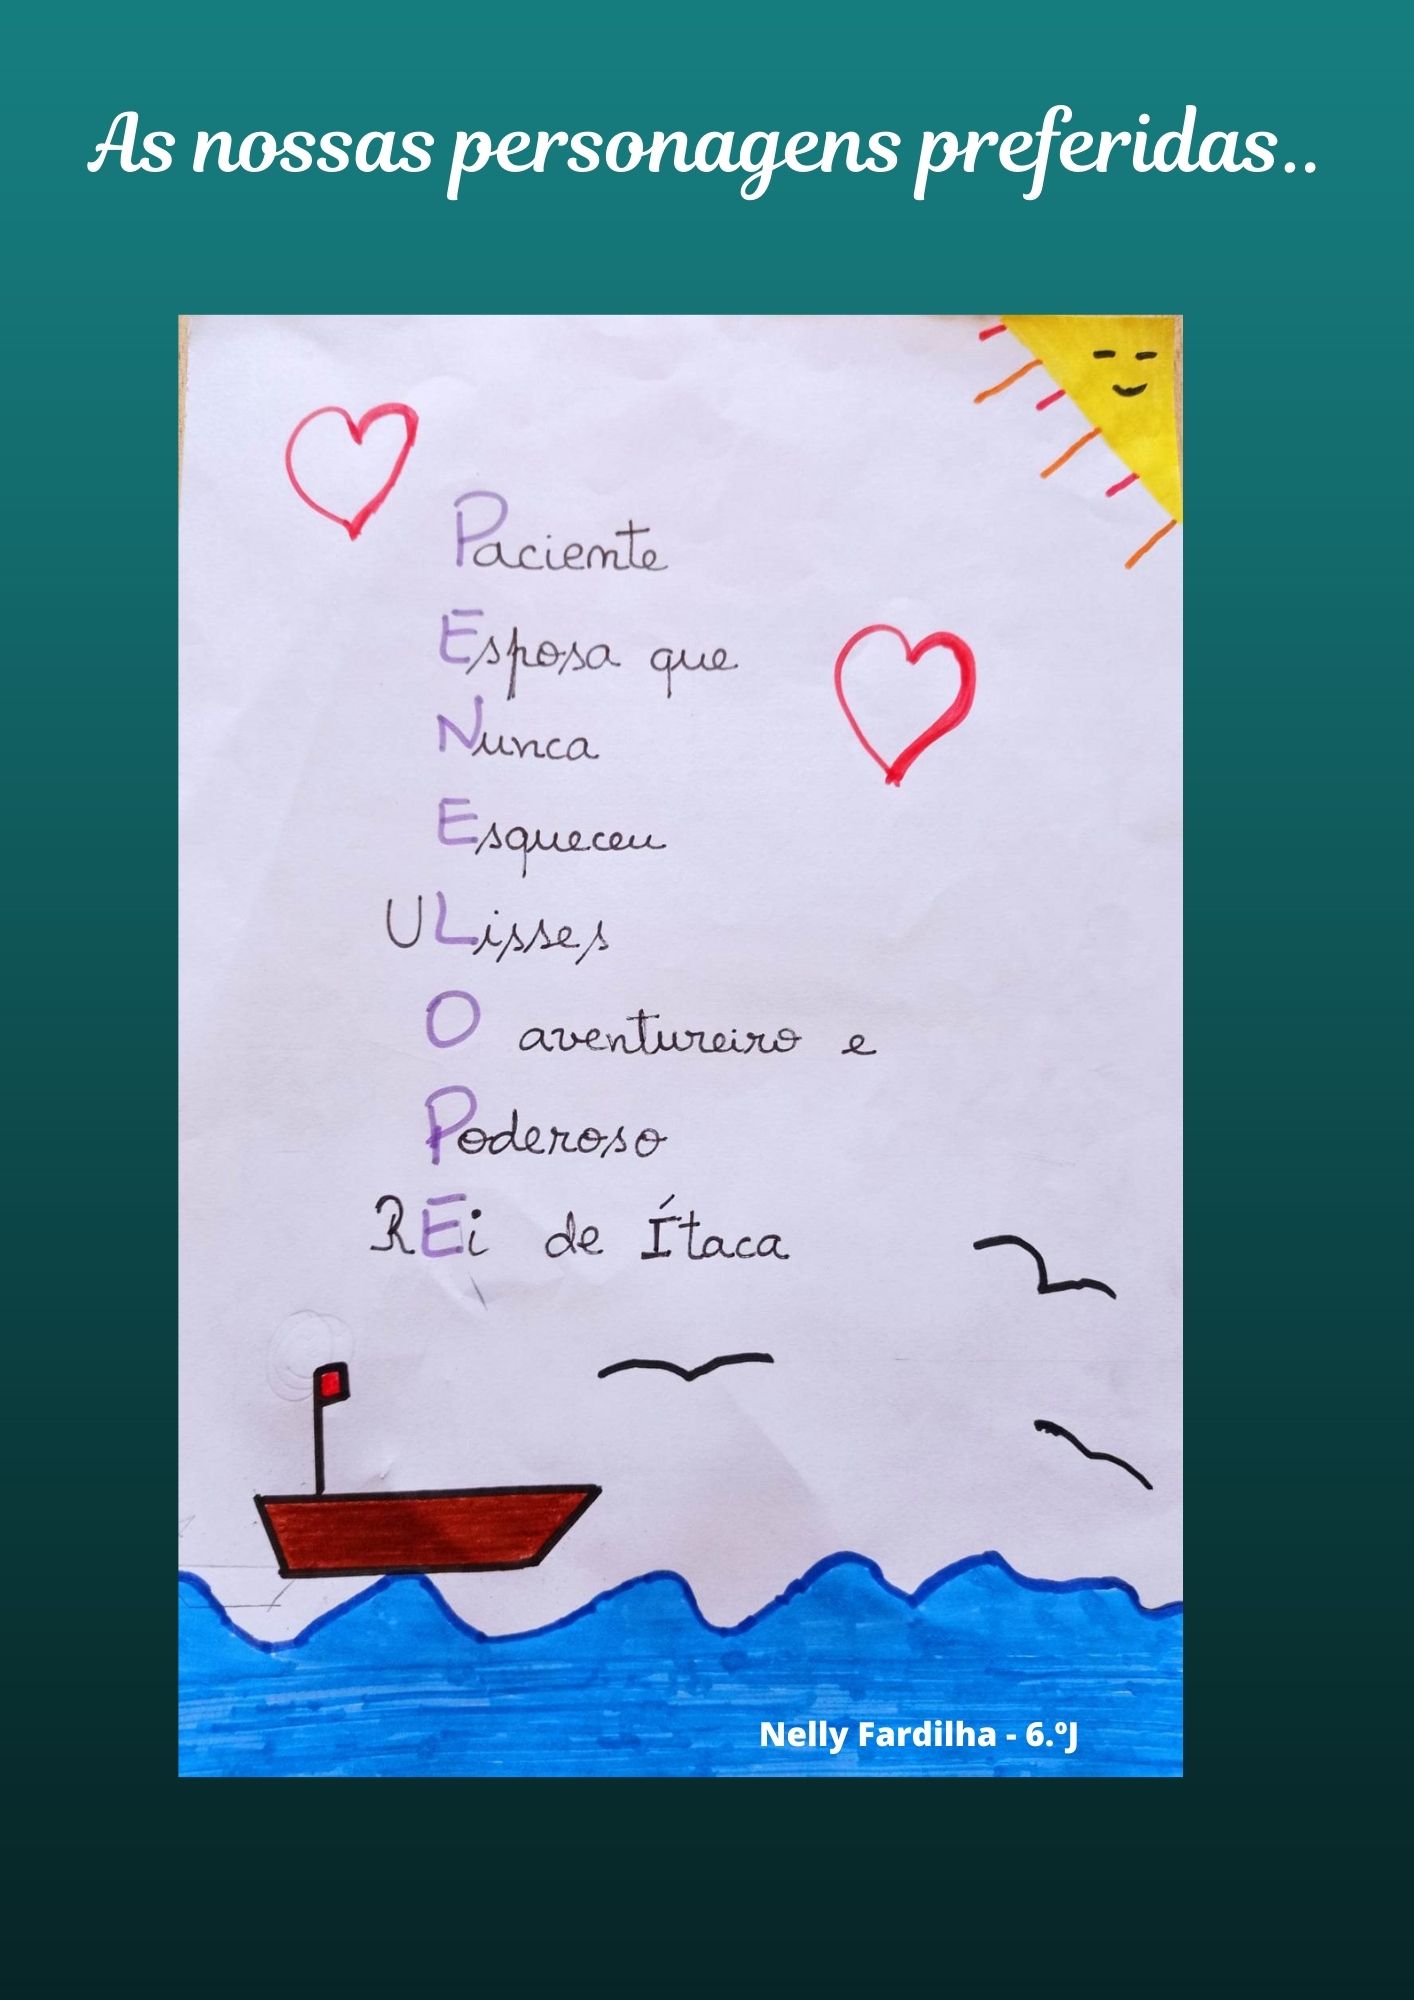 As nossas personagens preferidas..
Paciente
Esposa que
Nunca
Esqueceu
ULisses
O aventureiro e
Poderoso
REi de Ítaca
Nelly Fardilha - 6.ºJ